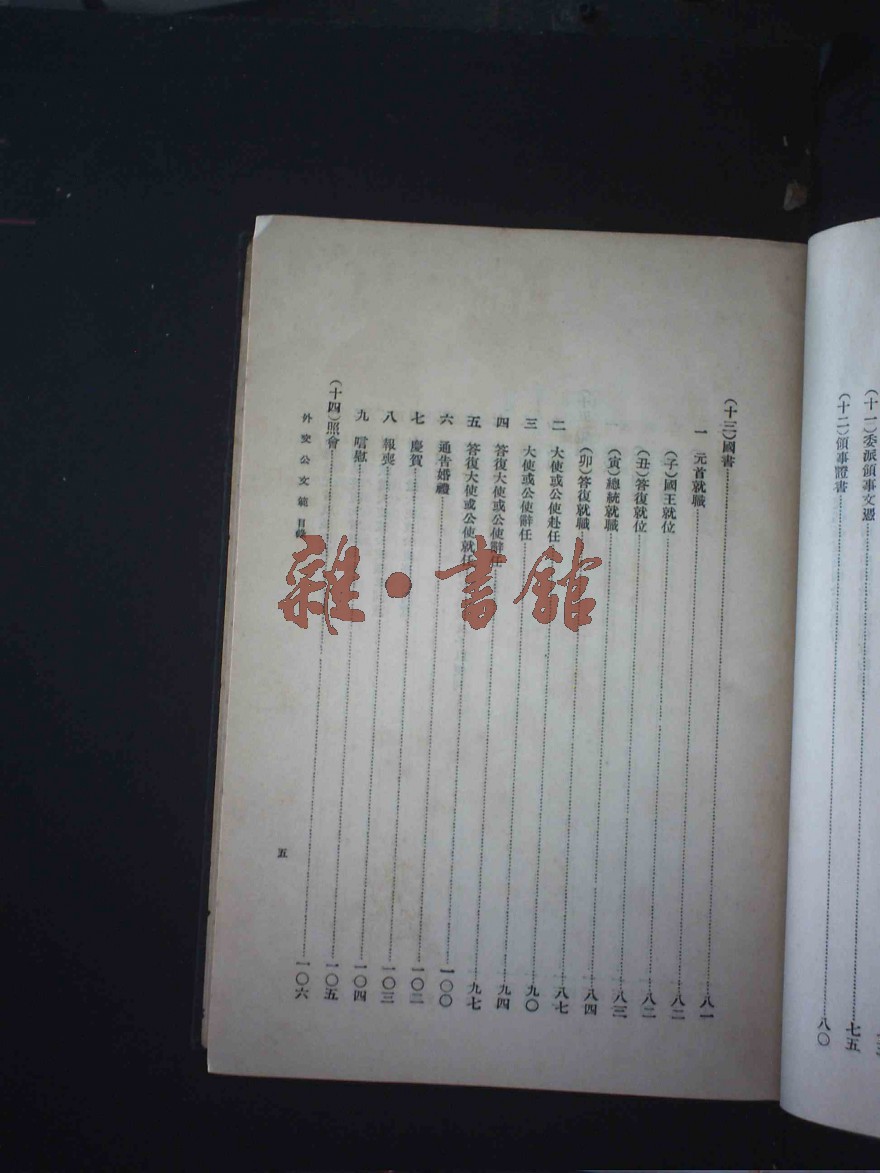 (十一)委派領事文憑……七五
(十二)領事證書……八〇
(十三)國書……八一
一 元首就職……八二
(子)國王就位……八二
(丑)答復就位……八三
(寅)總統就職……八四
(卯)答復就職……八七
二 大使或公使赴任……九〇
三 大使或公使辭任……九四
四 答復大使或公使辭任……九七
五 答復大使或公使就任……一〇〇
六 通告婚禮……一〇二
七 慶賀……一〇三
八 報喪……一〇四
九 唁慰……一〇五
(十四)照會……一〇六
外交公文範 目錄
五
雜·書館